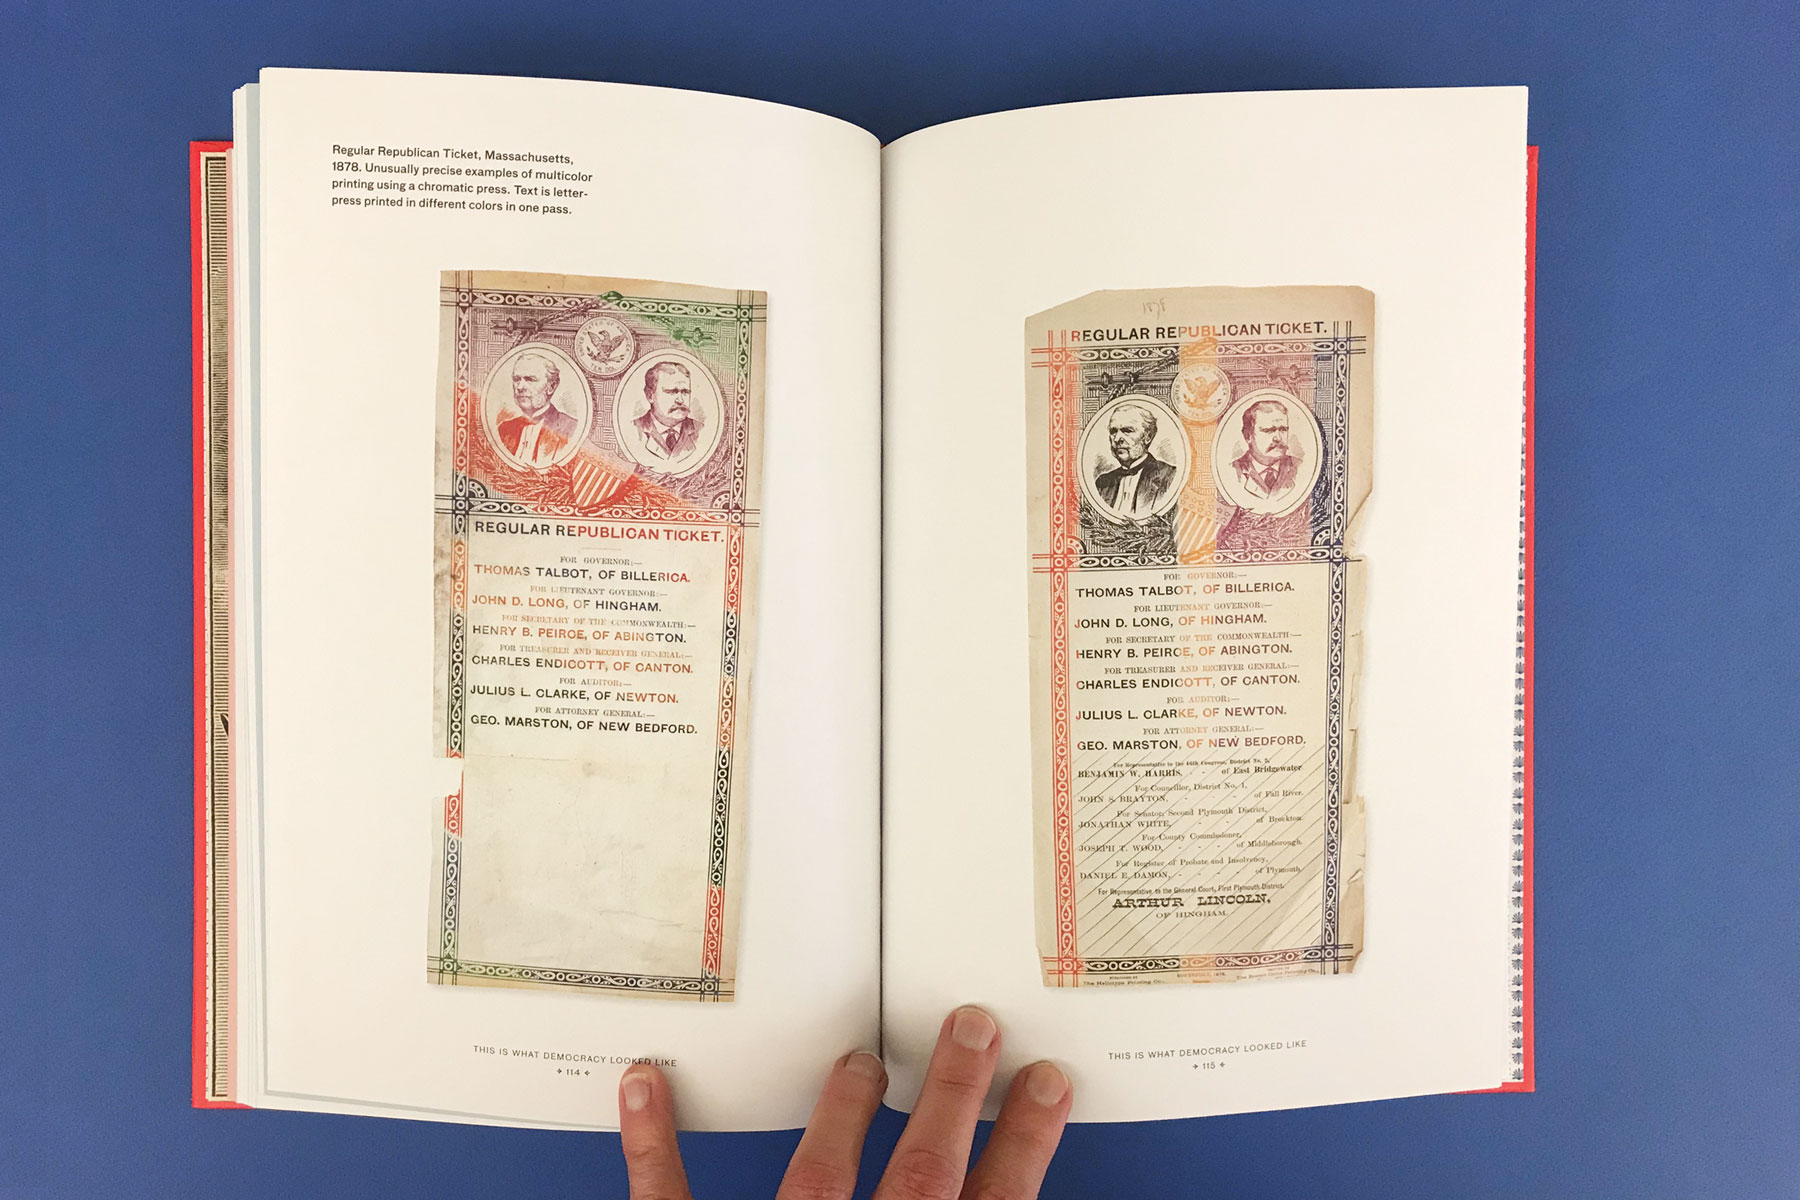 Regular Republican Ticket, Massachusetts,
1878. Unusually precise examples of multicolor
printing using a chromatic press. Text is letter-
press printed in different colors in one pass.
UNITED STATES OF
TEN DOL
REGULAR REPUBLICAN TICKET.
FOR GOVERNOR:—
THOMAS TALBOT, OF BILLERICA.
FOR LIEUTENANT GOVERNOR:—
JOHN D. LONG, OF HINGHAM.
FOR SECRETARY OF THE COMMONWEALTH:—
HENRY B. PEIRCE, OF ABINGTON.
FOR TREASURER AND RECEIVER GENERAL:—
CHARLES ENDICOTT, OF CANTON.
FOR AUDITOR:—
JULIUS L. CLARKE, OF NEWTON.
FOR ATTORNEY GENERAL:—
GEO. MARSTON, OF NEW BEDFORD.
THIS IS WHAT DEMOCRACY LOOKED LIKE
114
1878
REGULAR REPUBLICAN TICKET.
FOR GOVERNOR:—
THOMAS TALBOT, OF BILLERICA.
FOR LIEUTENANT GOVERNOR:—
JOHN D. LONG, OF HINGHAM.
FOR SECRETARY OF THE COMMONWEALTH:—
HENRY B. PEIRCE, OF ABINGTON.
FOR TREASURER AND RECEIVER GENERAL:—
CHARLES ENDICOTT, OF CANTON.
FOR AUDITOR:—
JULIUS L. CLARKE, OF NEWTON.
FOR ATTORNEY GENERAL:—
GEO. MARSTON, OF NEW BEDFORD.
For Representative to the 46th Congress, District No. 2,
BENJAMIN W. HARRIS, - - of East Bridgewater
For Councillor, District No. 1,
JOHN S. BRAYTON, - - - of Fall River.
For Senator, Second Plymouth District,
JONATHAN WHITE, - - - of Brockton.
For County Commissioner,
JOSEPH T. WOOD, - - - of Middleborough.
For Register of Probate and Insolvency,
DANIEL E. DAMON, - - - of Plymouth.
For Representative to the General Court, First Plymouth District.
ARTHUR LINCOLN,
OF HINGHAM.
The Heliotype Printing Co.,
THIS IS WHAT DEMOCRACY LOOKED LIKE
115